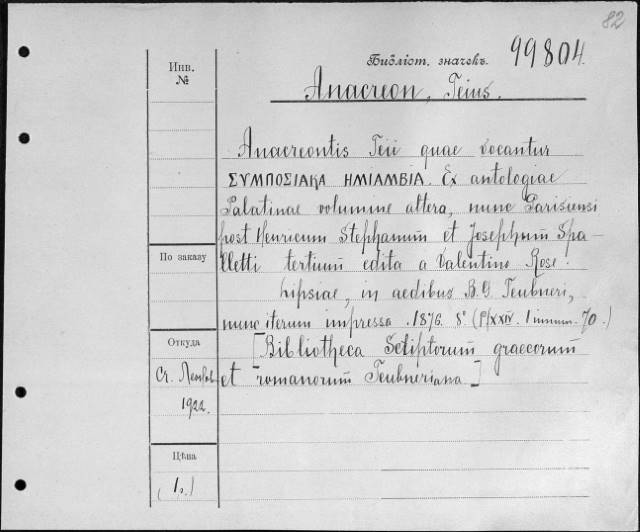 82
Библіот. значекъ. 99804.
Anacreon, Teius.
Инв.
№
Anacreontis Teii quae vocantur
ΣΥΜΠΟΣΙΑΚΑ ΗΜΙΑΜΒΙΑ. Ex antologiae
Palatinae volumine altera, nunc Parisiensi
post Henricum Stephanum et Josephum Spa-
lletti tertium edita a Valentino Rose.
Lipsiae, in aedibus B. G. Teubneri,
nunc iterum impressa. 1876. 8°. XXIV. 70.)
[Bibliotheca Sctiptorum graecorum
et romanorum Teubneriana.]
По заказу
Откуда
Ст.
1922.
Цѣна
(1.)